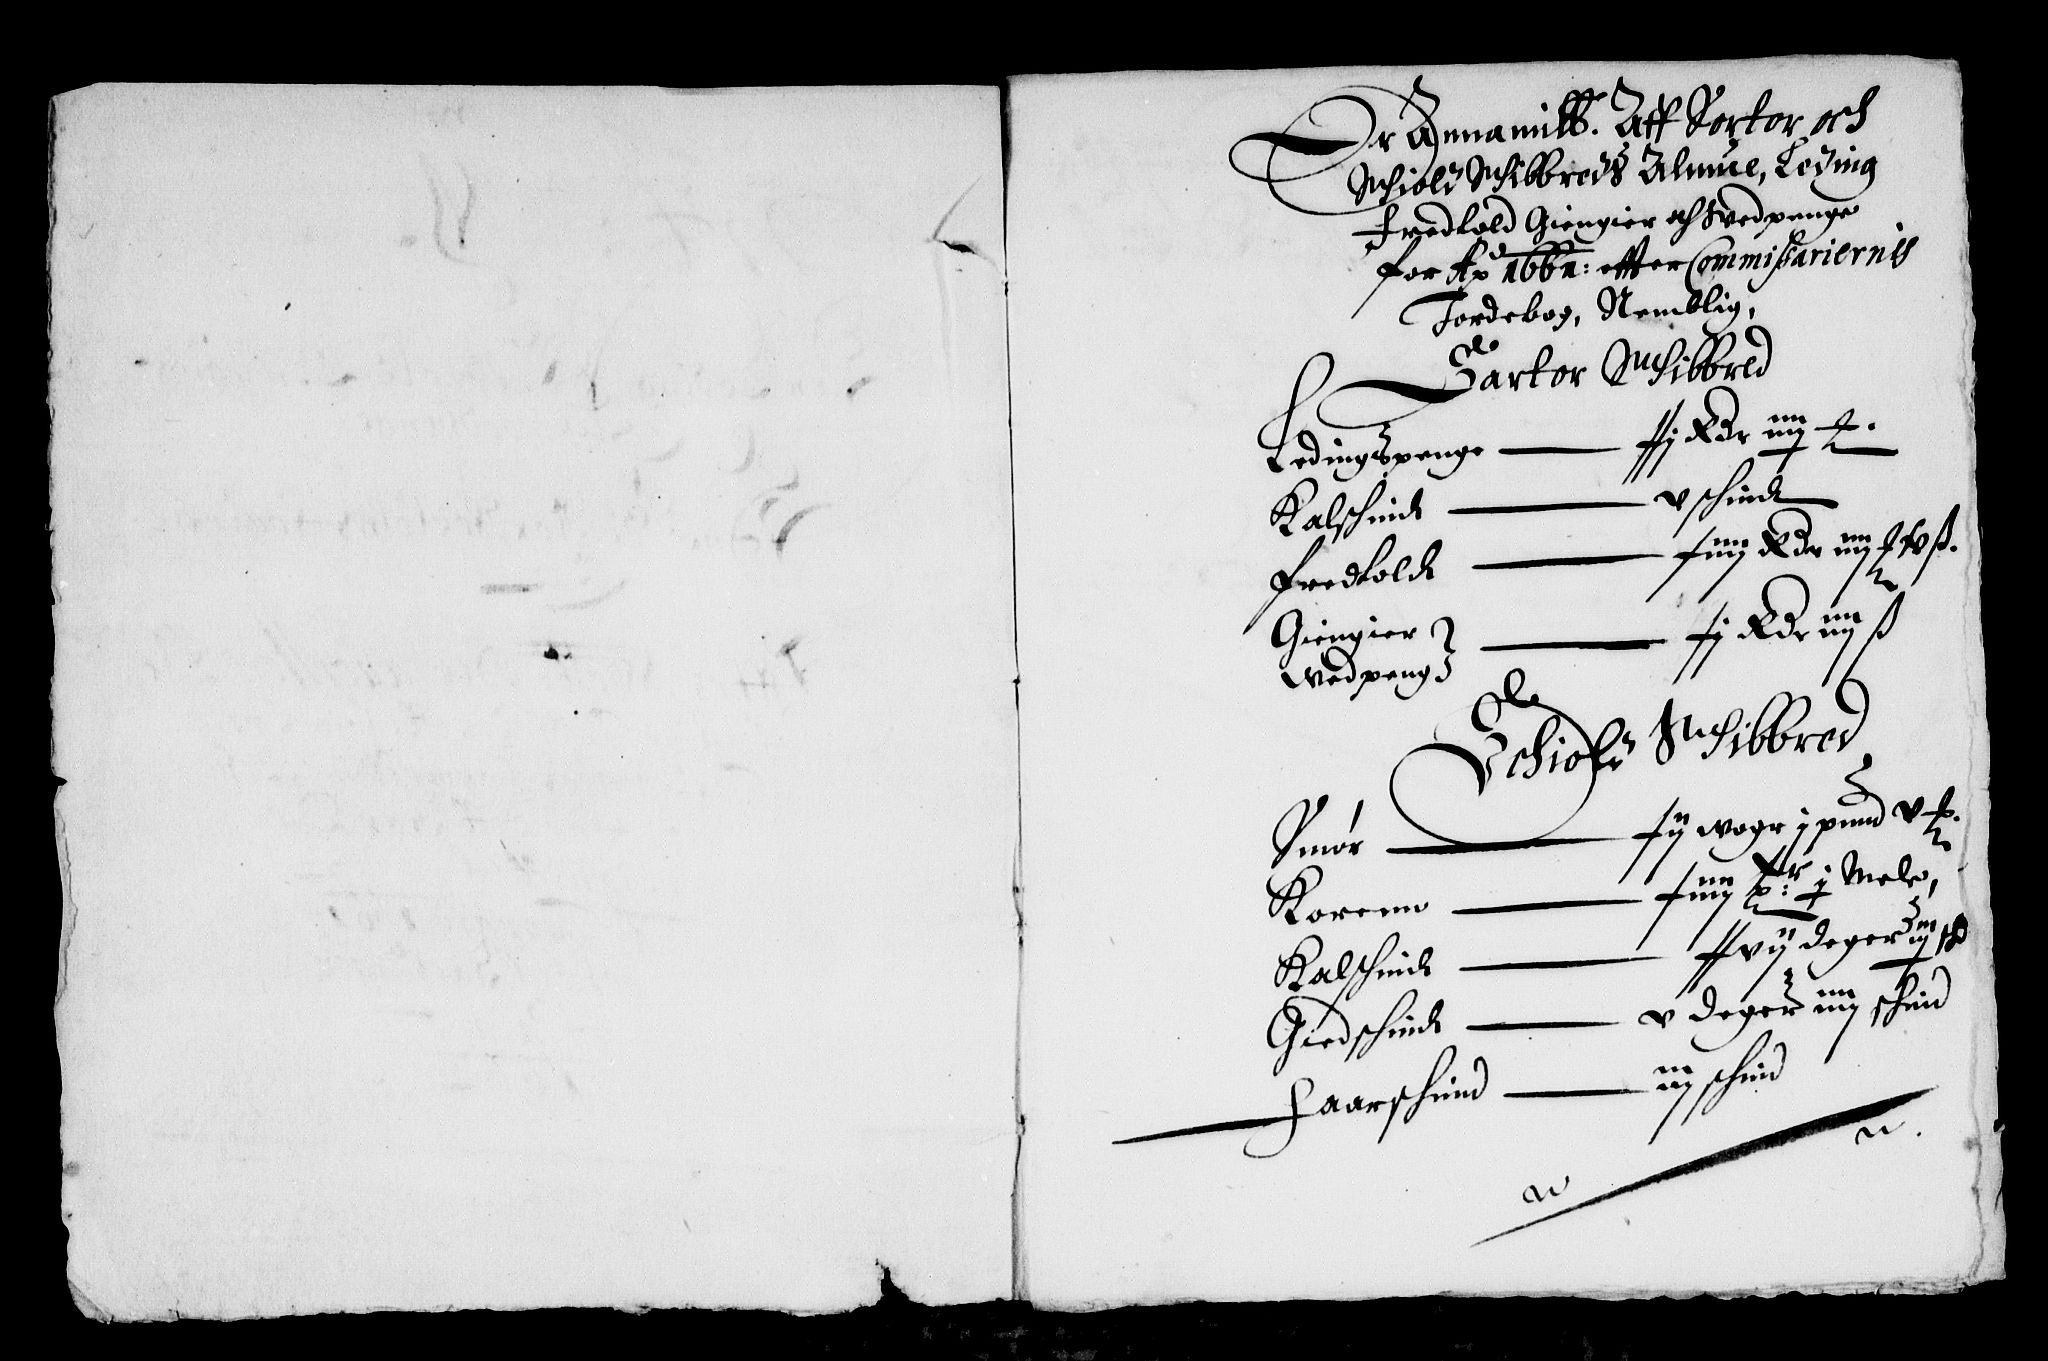 Er Annamitt. Aff Sartor och
Schiold Schibbreds Almue, Leding
Fredtold Giengierd och Wedpenge
for Ao 1661: effter Commissariernis
Jordebog, Nemblig,
Sartor Schibbred
Ledingspenge — xxj Rdr iiij
Kalschind — v schind
fredtold — xiiij Rdr iiij ß.
Giengier
Wedpeng — xj Rdr iiij ß
Schiold Schibbred
Smør — xij woger j pund v
Korenn — xiiij j Mele,
Kalschind — xxvij deger iij sk
Giedschind — v deger iiij schind
Haarschind — iij schind